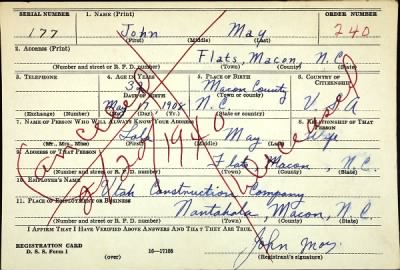 SERIAL NUMBER 1. NAME (Print) ORDER NUMBER
177 John May 240
(First) (Middle) (Last)
2. ADDRESS (Print)
Flats, Macon, N.C.
(Number and street or R. F. D. number) (Town) (County) (State)
3. TELEPHONE 4. AGE IN YEARS 5. PLACE OF BIRTH 6. COUNTRY OF CITIZENSHIP
32 Macon County
DATE OF BIRTH (Town or county)
May 17 1908 N.C. U S A
(Exchange) (No.) (Mo.) (Day) (Yr.) (State or country)
7. NAME OF PERSON WHO WILL ALWAYS KNOW YOUR ADDRESS 8. RELATIONSHIP OF THAT PERSON
May Wife
(Mr., Mrs., Miss) (First) (Middle) (Last)
9. ADDRESS OF THAT PERSON
Flats, Macon, N.C.
(Number and street or R. F. D. number) (Town) (County) (State)
10. EMPLOYER'S NAME
Utah Construction Company
11. PLACE OF EMPLOYMENT OR BUSINESS
Nantahala, Macon, N.C.
(Number and street or R. F. D. number) (Town) (County) (State)
I AFFIRM THAT I HAVE VERIFIED ABOVE ANSWERS AND THAT THEY ARE TRUE.
John May
REGISTRATION CARD
D. S. S. Form 1 (over) 16—17105 (Registrant's signature)
Cancelled
1940